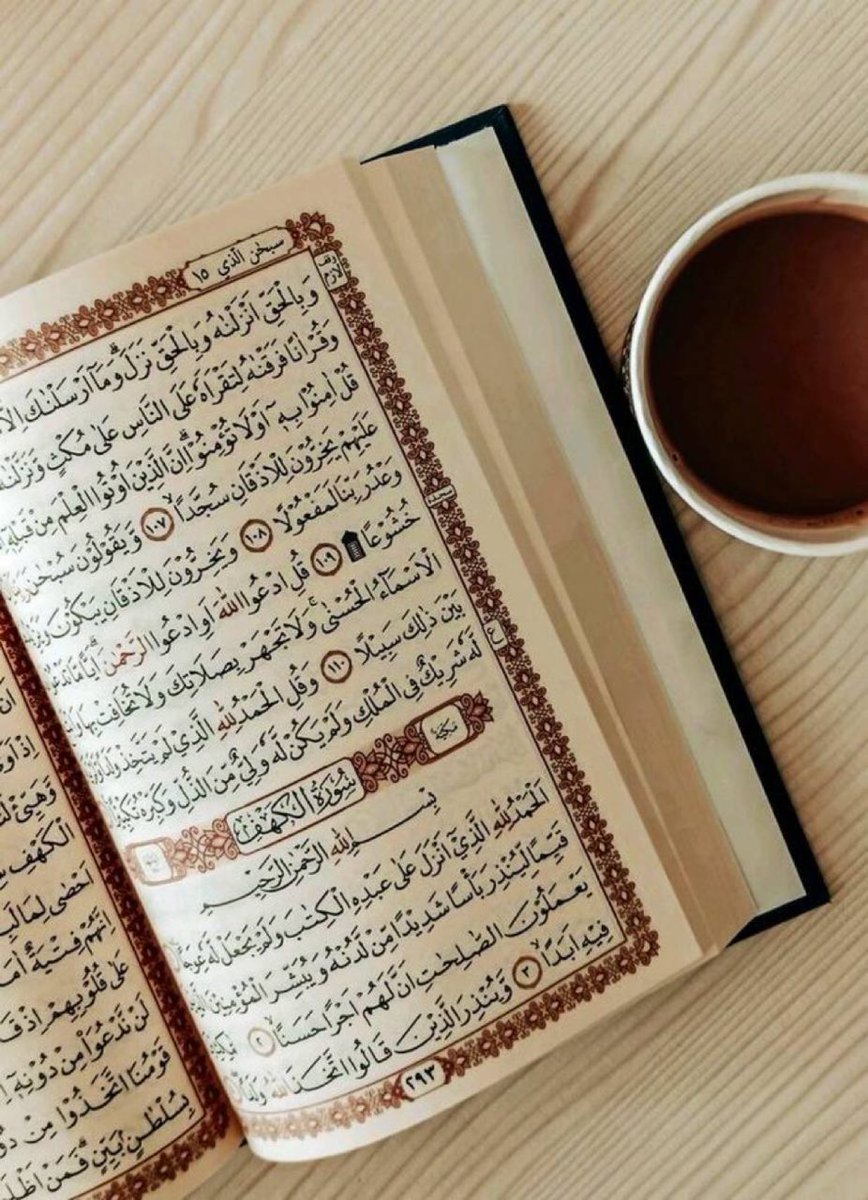 سبحٰن الذی ١٥
وقف لازم
وَبِالْحَقِّ اَنْزَلْنٰهُ وَبِالْحَقِّ نَزَلَ ؕ وَمَاۤ اَرْسَلْنٰكَ
وَقُرْاٰنًا فَرَقْنٰهُ لِتَقْرَاَهٗ عَلَى النَّاسِ عَلٰى مُكْثٍ
قُلْ اٰمِنُوْا بِهٖۤ اَوْ لَا تُؤْمِنُوْا ؕ اِنَّ الَّذِيْنَ اُوْتُوا الْعِلْمَ مِنْ قَبْلِهٖۤ
عَلَيْهِمْ يَخِرُّوْنَ لِلْاَذْقَانِ سُجَّدًا ۙ ١٠٧ وَّيَقُوْلُوْنَ سُبْحٰنَ
وَعْدُ رَبِّنَا لَمَفْعُوْلًا ١٠٨ وَيَخِرُّوْنَ لِلْاَذْقَانِ يَبْكُوْنَ
خُشُوْعًا ١٠٩ قُلِ ادْعُوا اللّٰهَ اَوِ ادْعُوا الرَّحْمٰنَ ؕ
الْاَسْمَآءُ الْحُسْنٰى ۚ وَلَا تَجْهَرْ بِصَلَاتِكَ وَلَا تُخَافِتْ بِهَا
بَيْنَ ذٰلِكَ سَبِيْلًا ١١٠ وَقُلِ الْحَمْدُ لِلّٰهِ الَّذِيْ لَمْ يَتَّخِذْ
لَّهٗ شَرِيْكٌ فِى الْمُلْكِ وَلَمْ يَكُنْ لَّهٗ وَلِيٌّ مِّنَ الذُّلِّ وَكَبِّرْهُ
سجدة
ع
سُوْرَةُ الْكَهْفِ
مَكِّيَّة
بِسْمِ اللّٰهِ الرَّحْمٰنِ الرَّحِيْمِ
اَلْحَمْدُ لِلّٰهِ الَّذِيْۤ اَنْزَلَ عَلٰى عَبْدِهِ الْكِتٰبَ وَلَمْ يَجْعَلْ لَّهٗ
قَيِّمًا لِّيُنْذِرَ بَاْسًا شَدِيْدًا مِّنْ لَّدُنْهُ وَيُبَشِّرَ الْمُؤْمِنِيْنَ
يَعْمَلُوْنَ الصّٰلِحٰتِ اَنَّ لَهُمْ اَجْرًا حَسَنًا ۙ ٢
فِيْهِ اَبَدًا ۙ ٣ وَّيُنْذِرَ الَّذِيْنَ قَالُوا اتَّخَذَ اللّٰهُ
٢٩٣
الْكَهْفِ
اَحْصٰى لِمَا
اِنَّهُمْ فِتْيَةٌ
عَلٰى قُلُوْبِهِمْ اِذْ
لَنْ نَّدْعُوَا۟ مِنْ دُوْنِهٖۤ
قَوْمُنَا اتَّخَذُوْا مِنْ
بِسُلْطٰنٍۢ بَيِّنٍ ؕ فَمَنْ